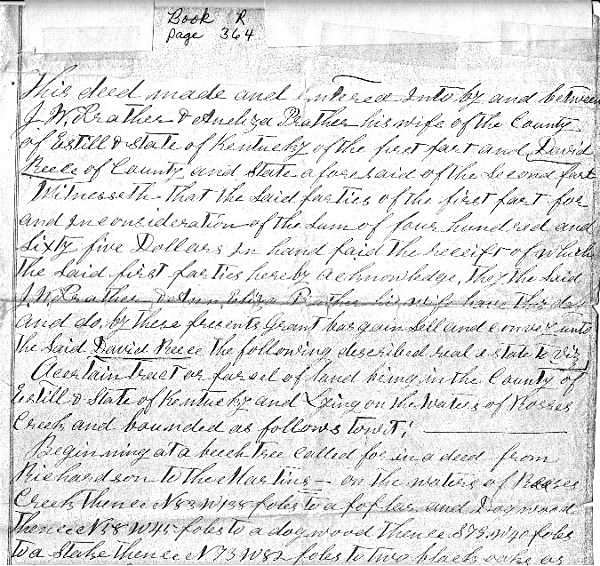 Book R
page 364
This deed made and entered into by and between
J. W. Prather & Aneliza Prather his wife of the County
of Estill & State of Kentucky of the first part and David
Reece of County and State aforesaid of the Second part
Witnesseth that the Said parties of the first part for
and in consideration of the Sum of four hundred and
Sixty five Dollars in hand paid the receipt of which
the Said first parties hereby acknowledge, they the Said
J. W. Prather & Ann Eliza Prather his wife have this day
and do by these presents Grant bargain Sell and convey unto
the Said David Reece the following described real estate to viz,
A certain tract or parsel of land being in the County of
Estill & State of Kentucky and Lying on the Waters of Rosses
Creek and bounded as follows towit;
Beginning at a beech tree called for in a deed from
Richardson to the Martins on the waters of Rosses
Creek thence N 83 W 138 poles to a poplar and Dogwood
thence N 58 W 45 poles to a dogwood thence S 73 W 40 poles
to a Stake thence N 73 W 82 poles to two black oaks